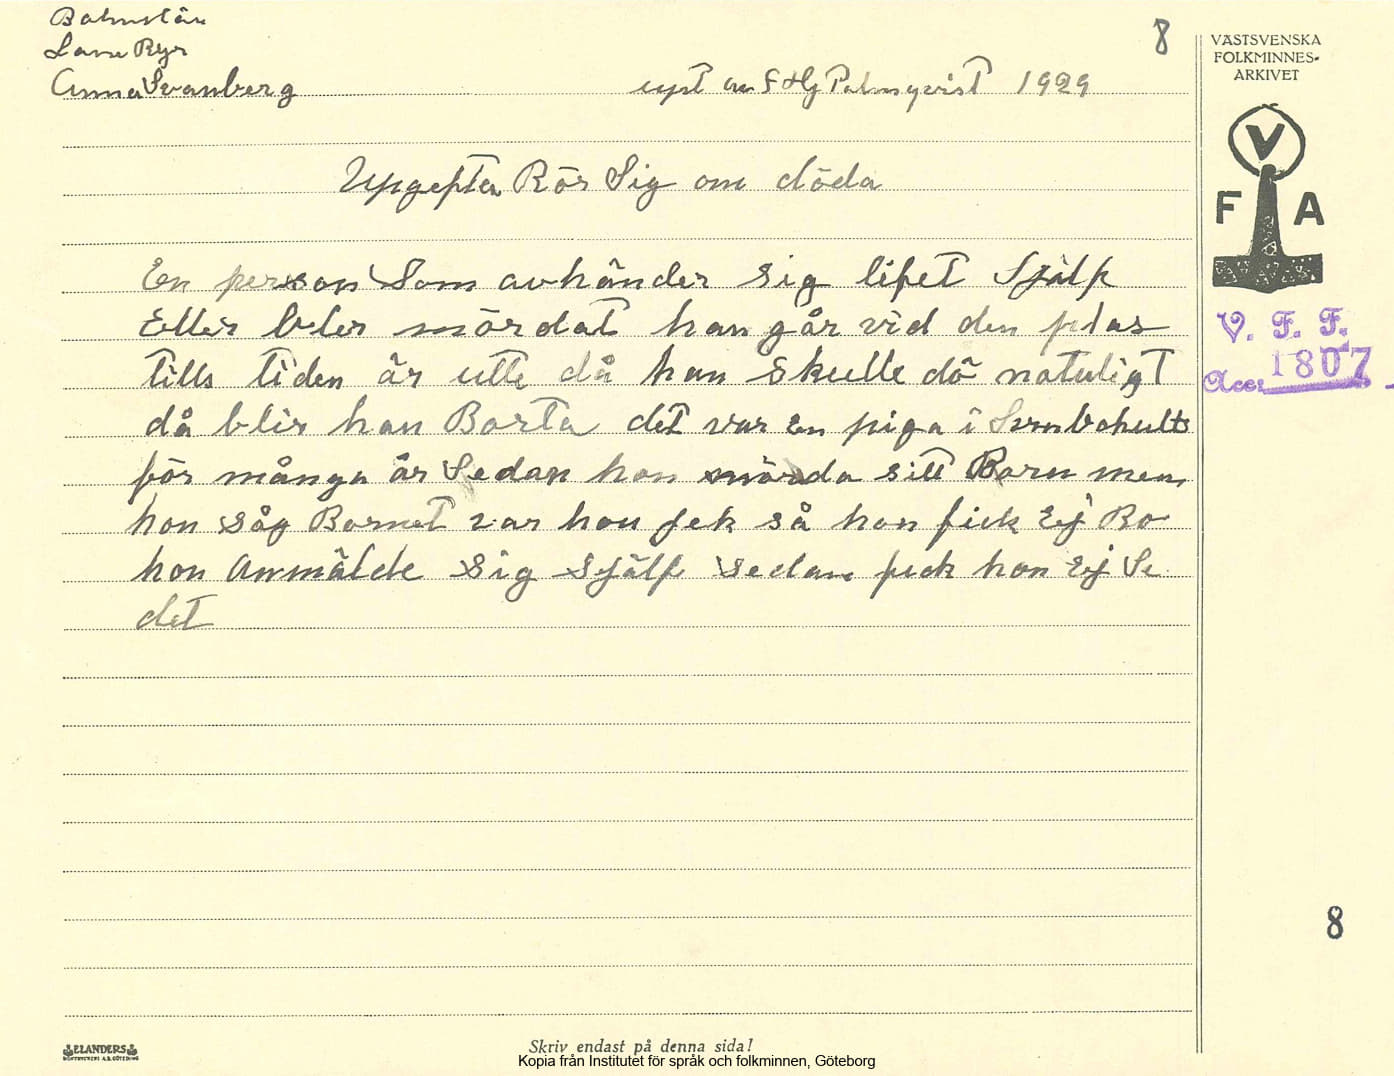 Bohuslän
Lane Ryr
Anna Svanberg
8
upt av F Hj Palmqvist 1929
VÄSTSVENSKA
FOLKMINNES-
ARKIVET
V
F A
Upgeften Rör Sig om döda
En person Som avhänder sig lifvet Sjålf
Eller bler mördat han går vid den plas
tills tiden är utte då han skulle dö natuligt
då blir han Borta det var en piga i
för många år Sedan hon mörda sitt Barn men
hon såg Barnet var hon jek så hon fick Ej Ro
hon Anmälde sig sjålf sedan feck hon Ej Se
det
V. F. F.
Acc. 1807
8
ELANDERS
BOKTRYCKERI A.B. GÖTEBORG
Skriv endast på denna sida!
Kopia från Institutet för språk och folkminnen, Göteborg